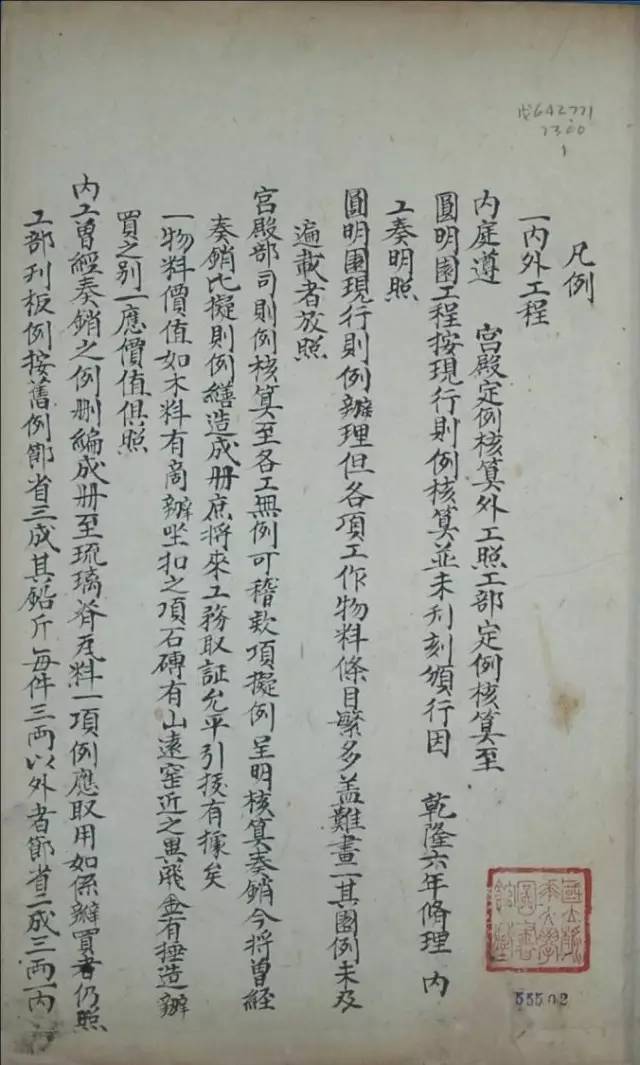 凡例
一內外工程
內庭遵 宮殿定例核算外工照工部定例核算至
圓明園工程按現行則例核算並未刋刻頒行因 乾隆六年脩理 內
工奏明照
圓明園現行則例辦理但各項工作物料條目繁多盖難畫一其園例未及
遍載者放照
宮殿部司則例核算至各工無例可稽款項擬例呈明核算奏銷今將曾經
奏銷比擬則例繕造成册庶將來工務取証允平引援有據矣
一物料價值如木料有商辦坐扣之項石磚有山遠窑近之異飛金有捶造辦
買之别一應價值俱照
內工曾經奏銷之例删編成册至琉璃脊瓦料一項例應取用如係辦買者仍照
工部刋板例按舊例節省三成其鉛斤每件三两以外者節省二成三两一內
戊642771
7300
1
國立
大學
圖書
55502